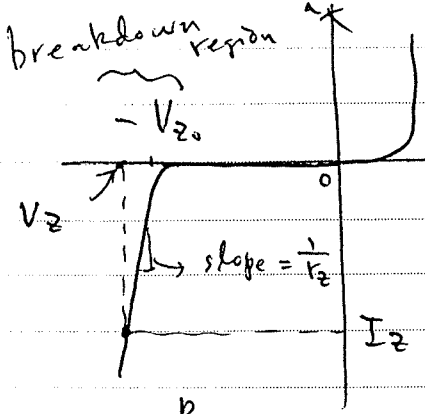 breakdown region
- Vz₀
0
Vz
slope = 1/rz
Iz